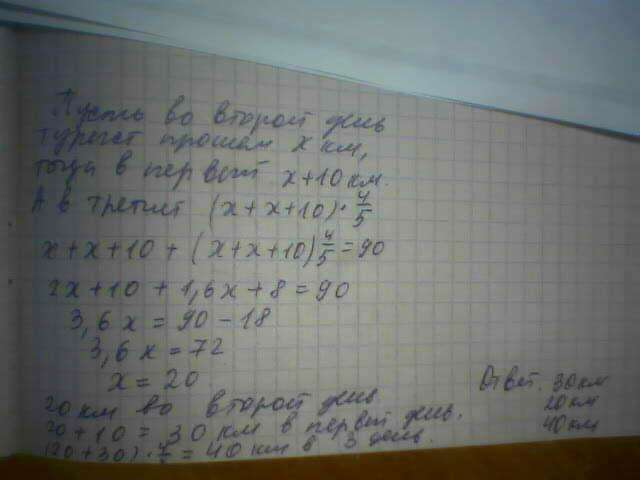 Пусть во второй день
турист прошел x км,
тогда в первый x+10 км.
А в третий (x+x+10)·4/5
x+x+10+(x+x+10)4/5=90
2x+10+1,6x+8=90
3,6x=90-18
3,6x=72
x=20
20 км во второй день.
20+10=30 км в первый день.
(20+30)·4/5=40 км в 3 день.
Ответ. 30 км
20 км
40 км